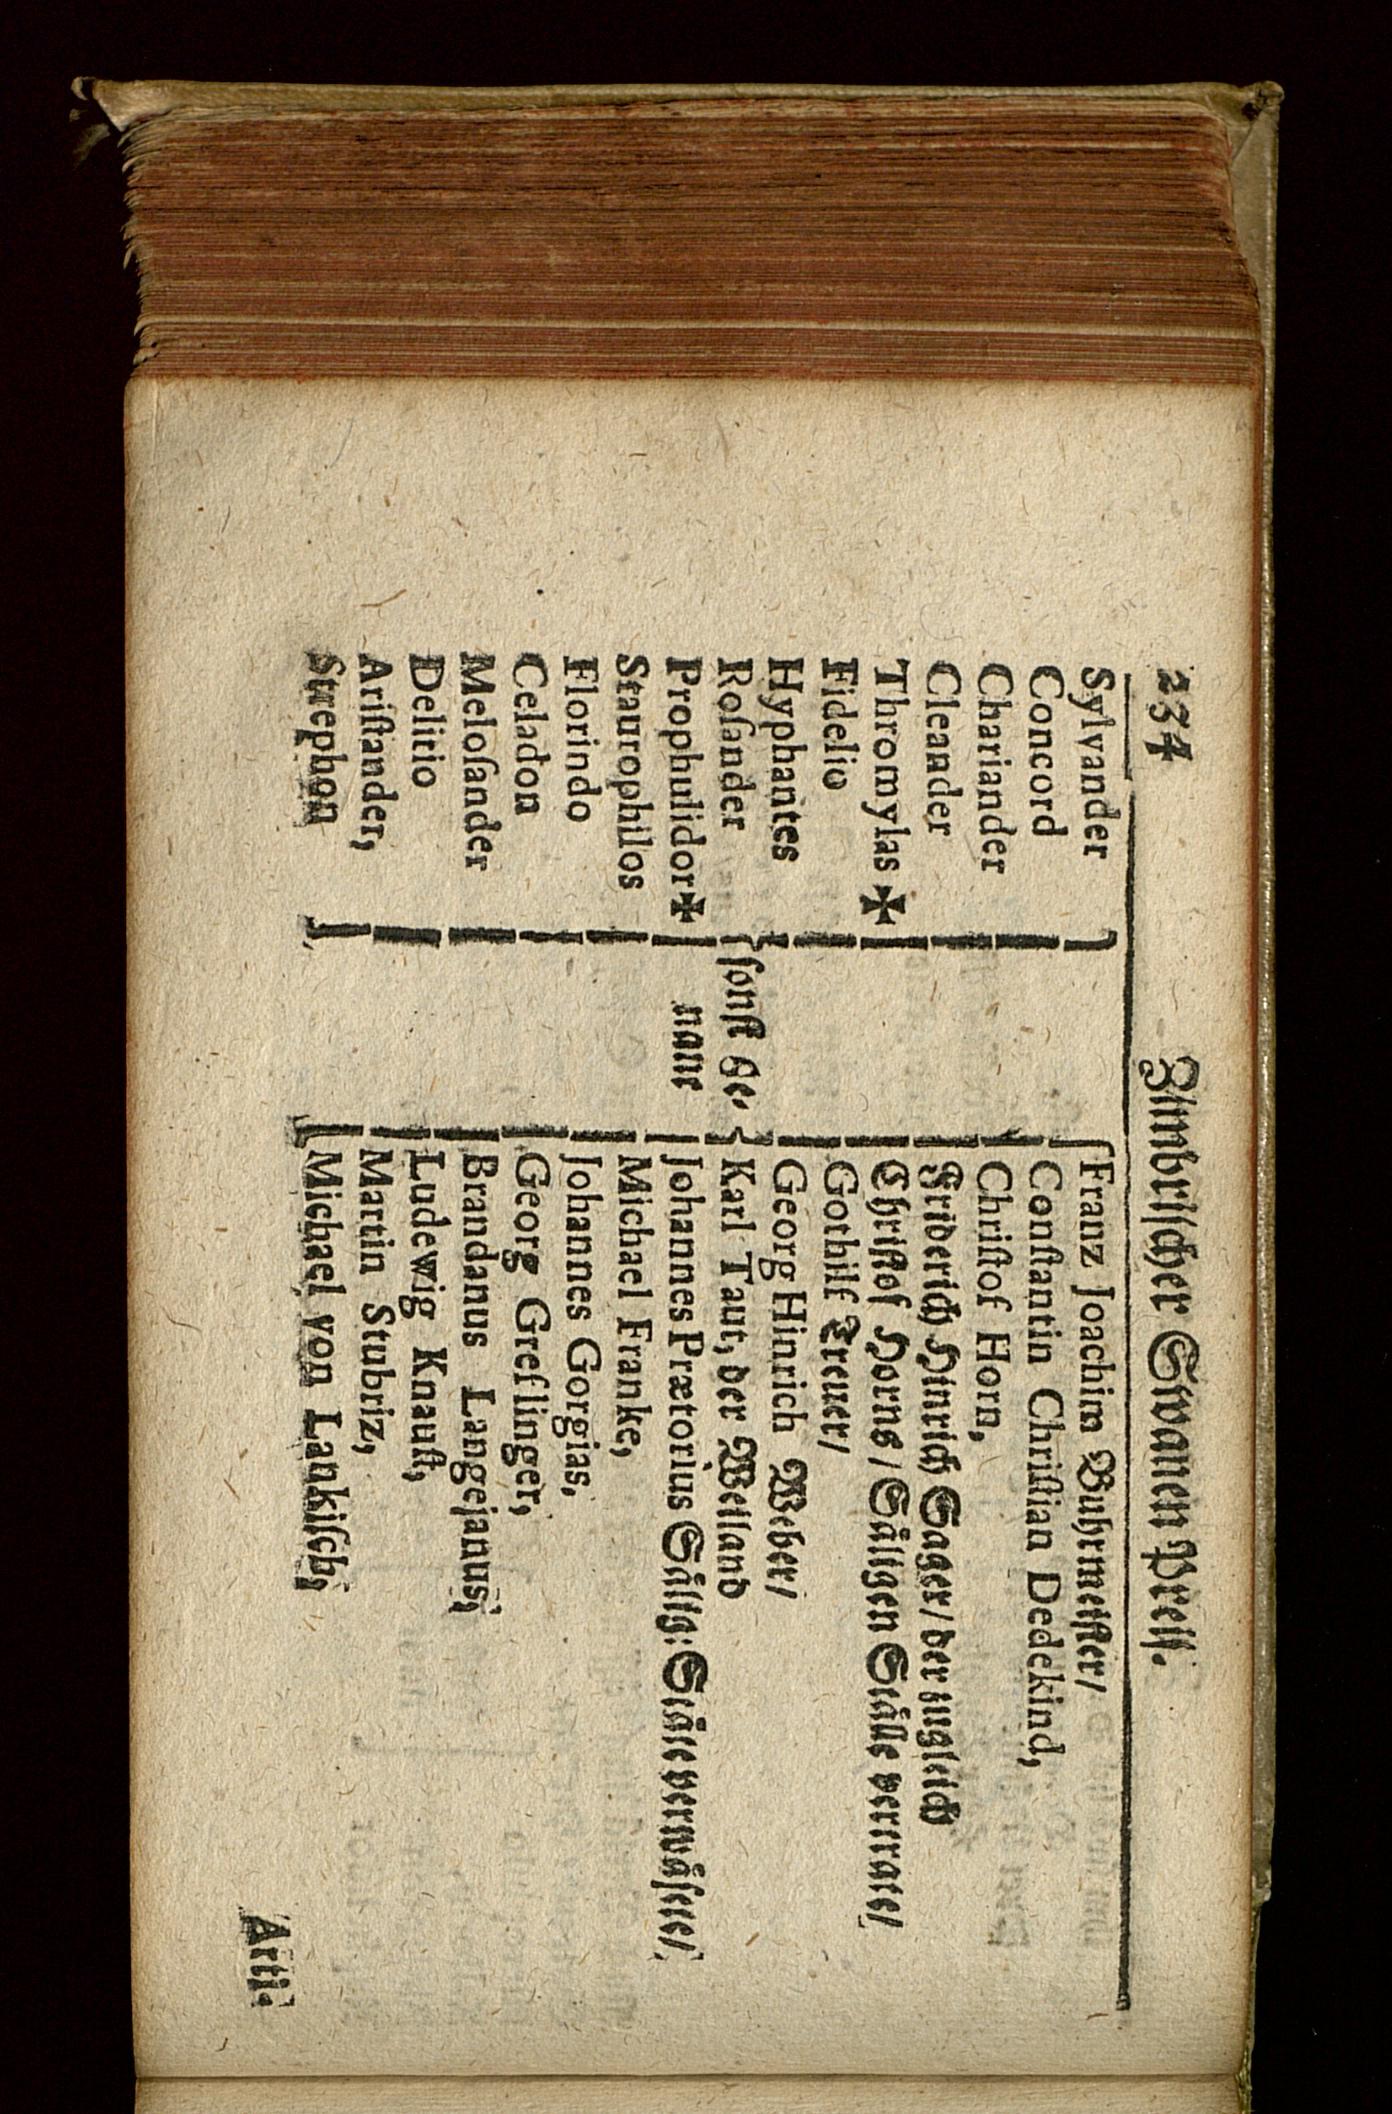 234 Zimbriſcher Swanen Preiſ.
Sylvander
Concord
Chariander
Cleander
Thromylas ✠
Fidelio
Hyphantes
Roſander
Prophulidor ✠
Staurophilos
Florindo
Celadon
Meloſander
Delitio
Ariſtander,
Strephon
ſonſt ge-
nant
Franz Joachim Buhrmeiſter/
Conſtantin Chriſtian Dedekind,
Chriſtof Horn,
Friderich Hinrich Sager/ der zugleich
Chriſtof Horns / Säligen Ställe vertrate/
Gothilf Treuer/
Georg Hinrich Weber/
Karl Taut, der Weiland
Johannes Prætorius Sälig: Stäte verwäſete/
Michael Franke,
Johannes Gorgias,
Georg Greflinger,
Brandanus Langejanus,
Ludewig Knauſt,
Martin Stubriz,
Michael von Lankiſch,
Arti-